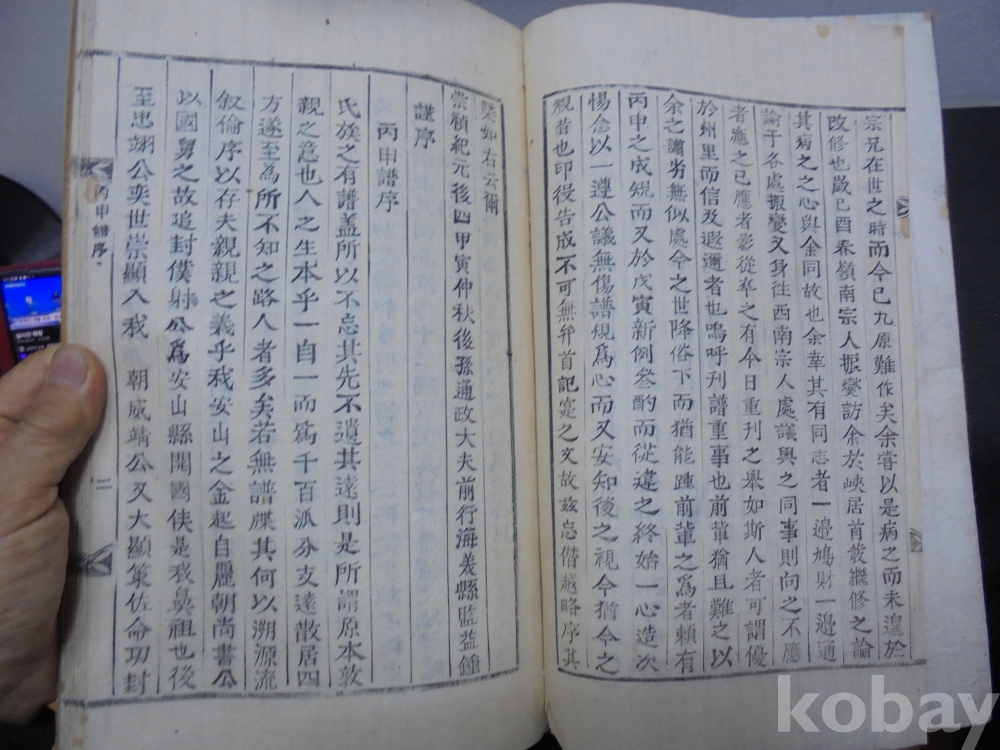 宗兄在世之時而今已九原難作矣余嘗以是病之而未遑於
改修也歲己酉春嶺南宗人振燮訪余於峽居首發繼修之論
其病之之心與余同故也余幸其有同志者一邊鳩財一邊通
諭于各處振燮又身往西南宗人處議興之同事則向之不應
者應之已應者影從卒之有今日重刊之舉如斯人者可謂優
於州里而信及遐邇者也嗚呼刊譜重事也前輩猶且難之以
余之譾劣無似處今之世降俗下而猶能踵前輩之爲者賴有
丙申之成規而又於戊寅新例叄酌而從違之終始一心造次
惕念以一遵公議無傷譜規爲心而又安知後之視今猶今之
視昔也印役告成不可無弁首記寔之文故玆忘僭越略序其
槩如右云爾
崇禎紀元後四甲寅仲秋後孫通政大夫前行海美縣監益鍾
謹序
丙申譜序
氏族之有譜盖所以不忘其先不遺其遠則是所謂原本敦
親之意也人之生本乎一自一而爲千百派分支遠散居四
方遂至為所不知之路人者多矣若無譜牒其何以溯源流
叙倫序以存夫親親之義乎我安山之金起自麗朝尚書公
以國舅之故追封僕射公爲安山縣開國侯是我鼻祖也後
至忠翊公奕世崇顯入我 朝威靖公又大顯策佐命功封
丙申譜序
二
kobay